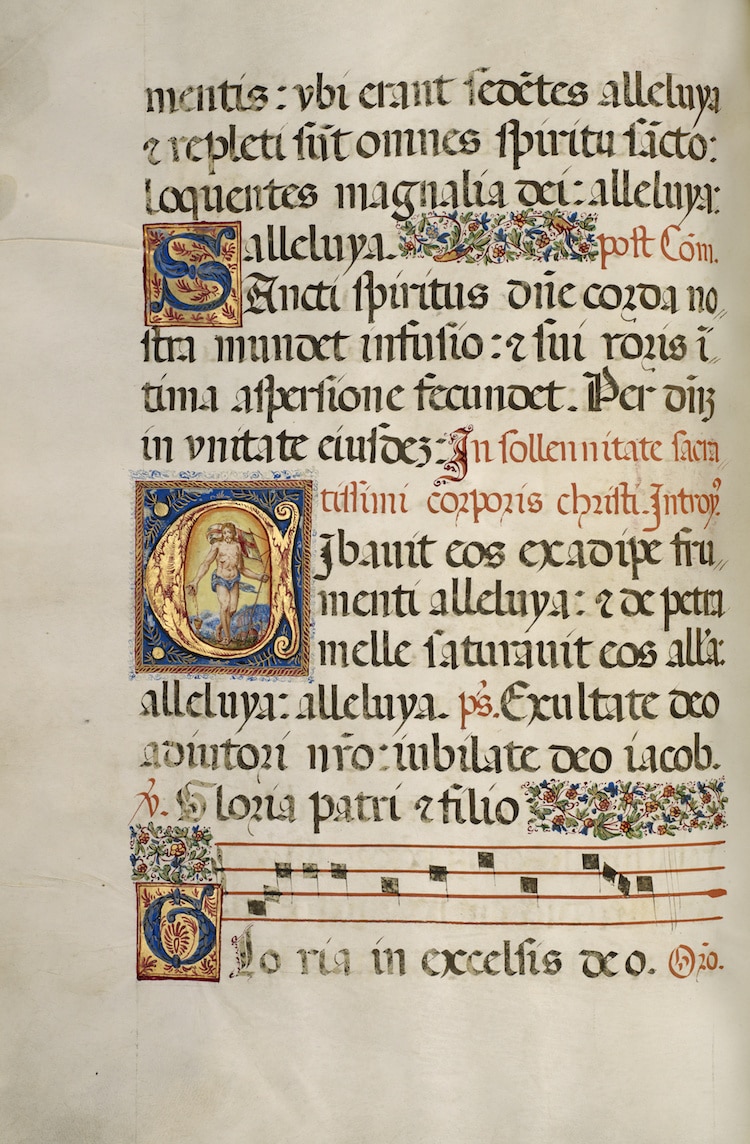 mentis: vbi erant sedẽtes alleluya
⁊ repleti sũt omnes spiritu sãcto:
loquentes magnalia dei: alleluya:
alleluya. post Cõm.
SAncti spiritus dñe corda no,,
stra mundet infusio: ⁊ sui roris ĩ,,
tima aspersione fecundet. Per dñʒ
in vnitate eiusdeʒ: In sollennitate sacra
tissimi corporis christi. Introyꝰ.
Cibauit eos exadipe fru,,
menti alleluya: ⁊ de petra
melle saturauit eos alla:
alleluya: alleluya. ps. Exultate deo
adiutori nr̃o: iubilate deo iacob.
v. Gloria patri ⁊ filio
Glo ria in excelsis deo. Orõ.